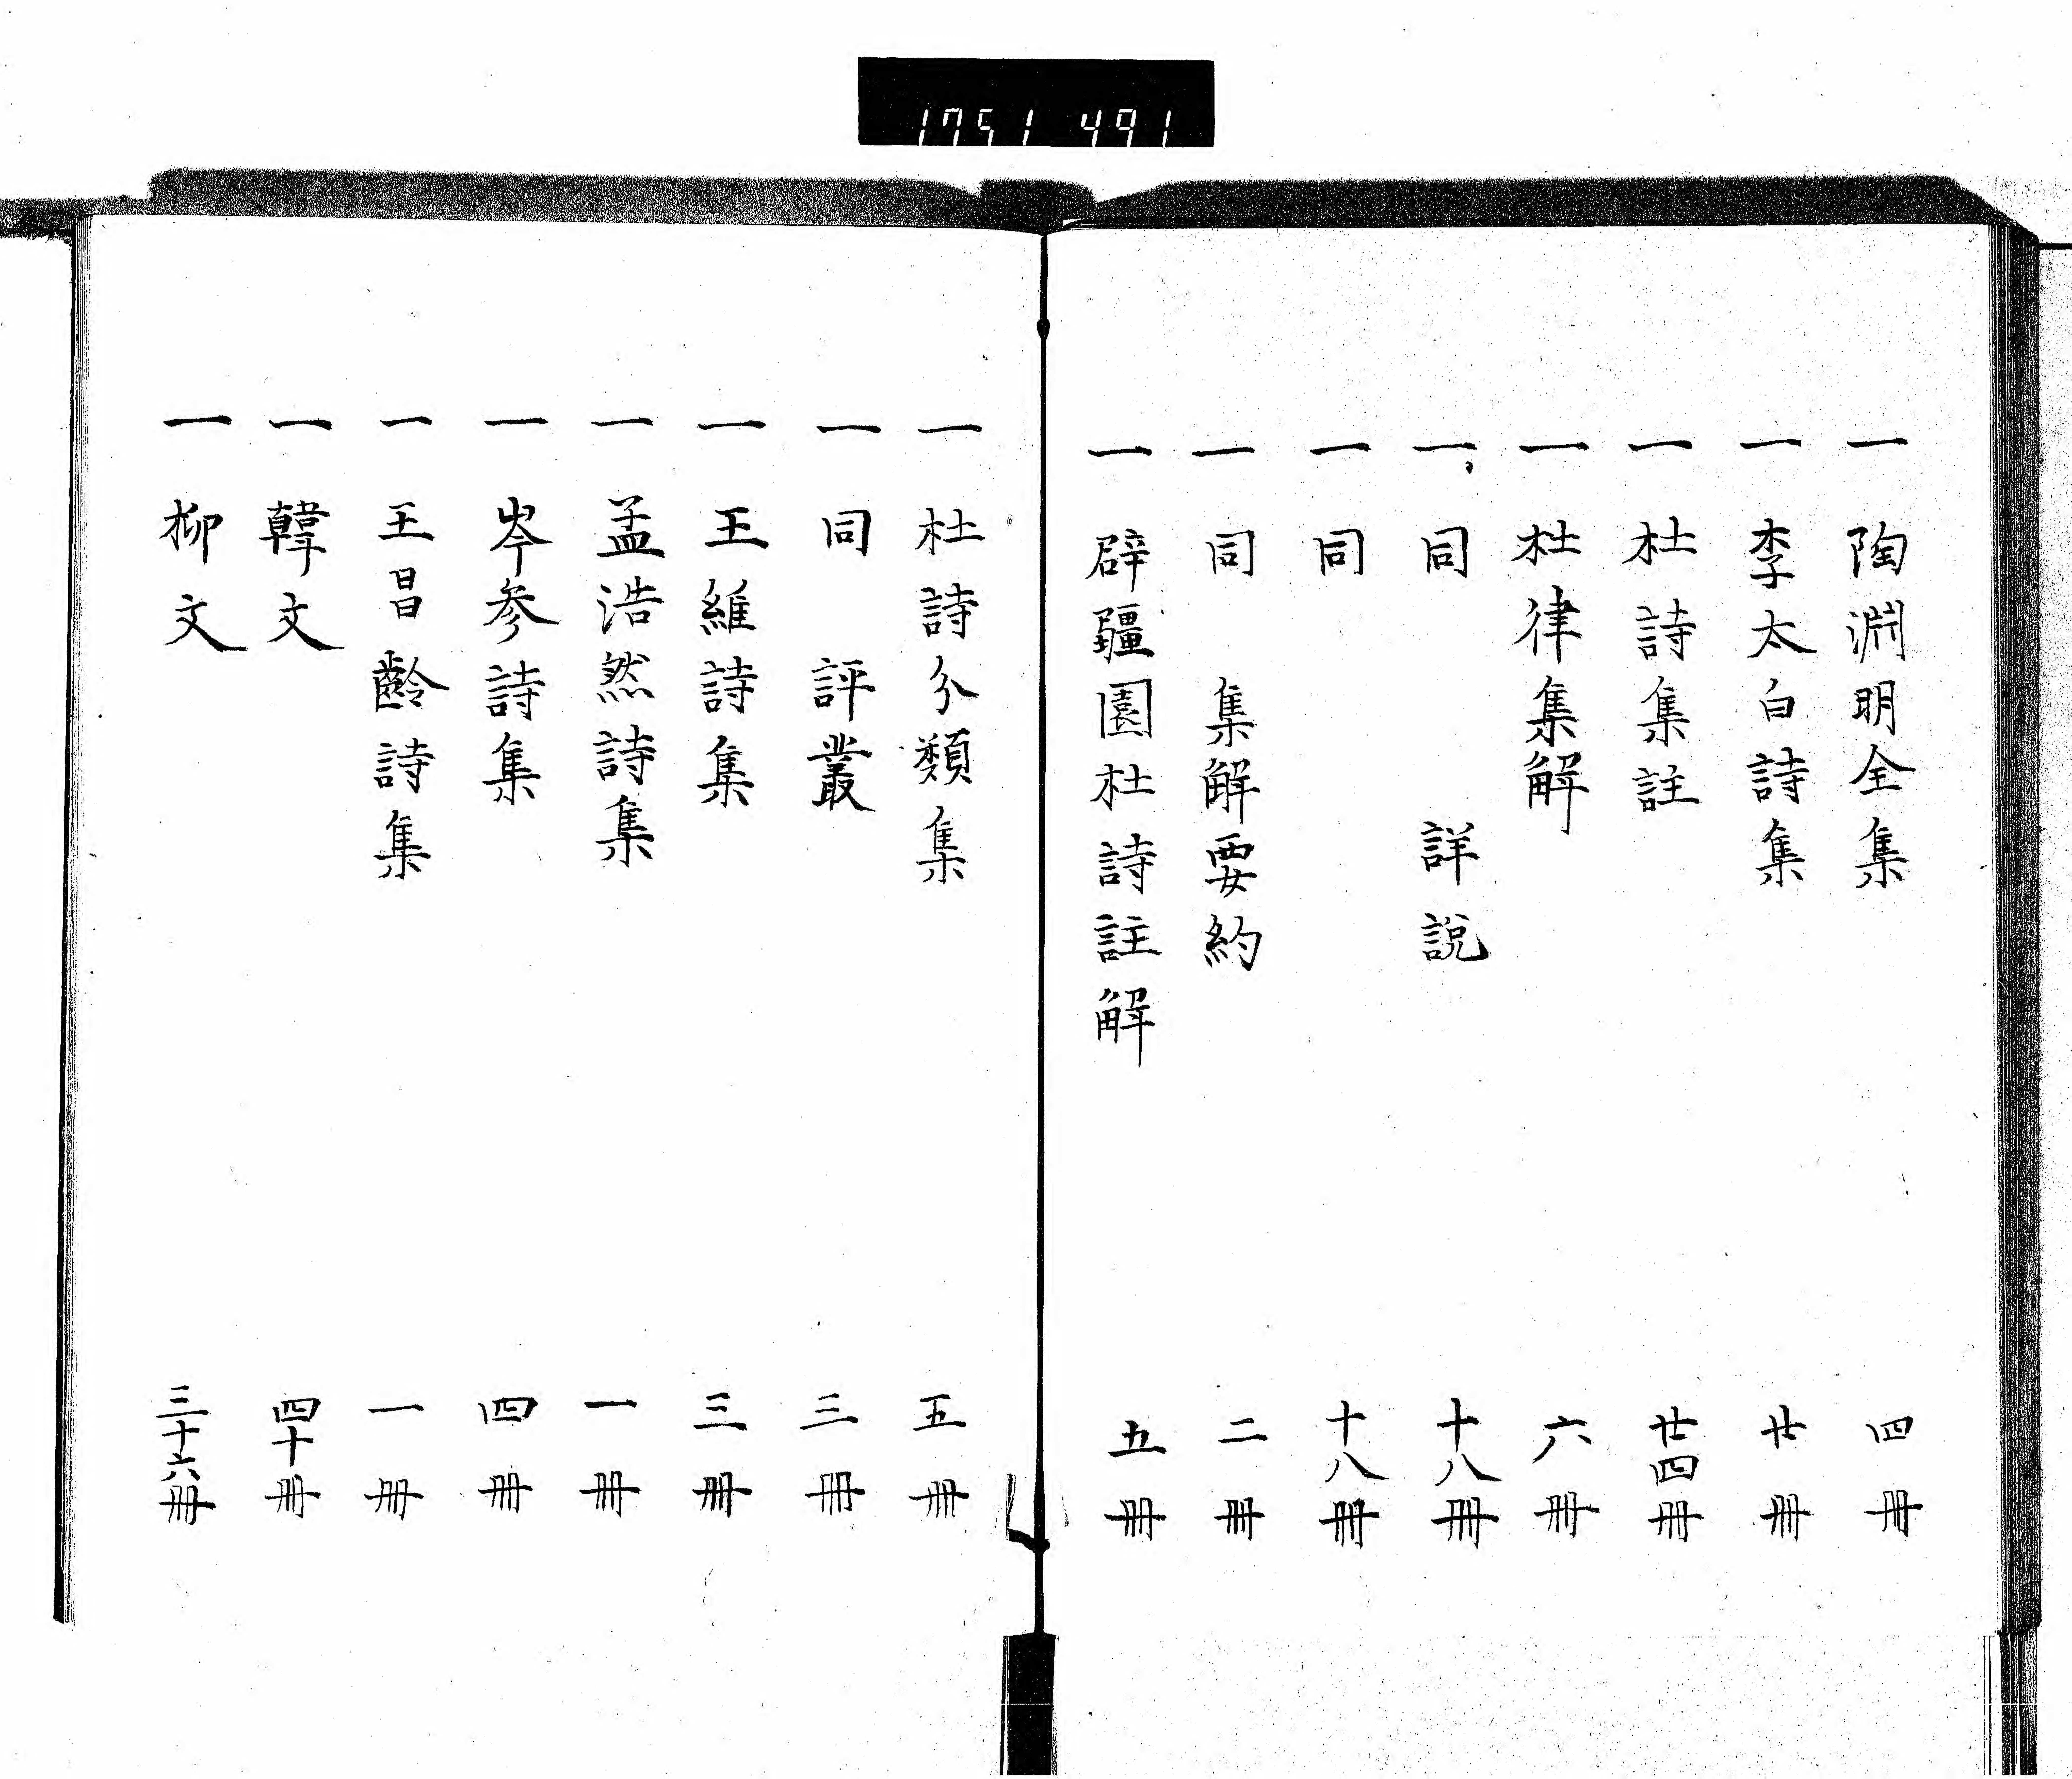 1751 491
一 陶淵明全集 四冊
一 李太白詩集 廿冊
一 杜詩集註 廿四冊
一 杜律集解 六冊
一 同 詳說 十八冊
一 同 十八冊
一 同 集解要約 二冊
一 辟疆園杜詩註解 五冊
一 杜詩分類集 五冊
一 同 評叢 三冊
一 王維詩集 三冊
一 孟浩然詩集 一冊
一 岑参詩集 四冊
一 王昌齡詩集 一冊
一 韓文 四十冊
一 柳文 三十六冊